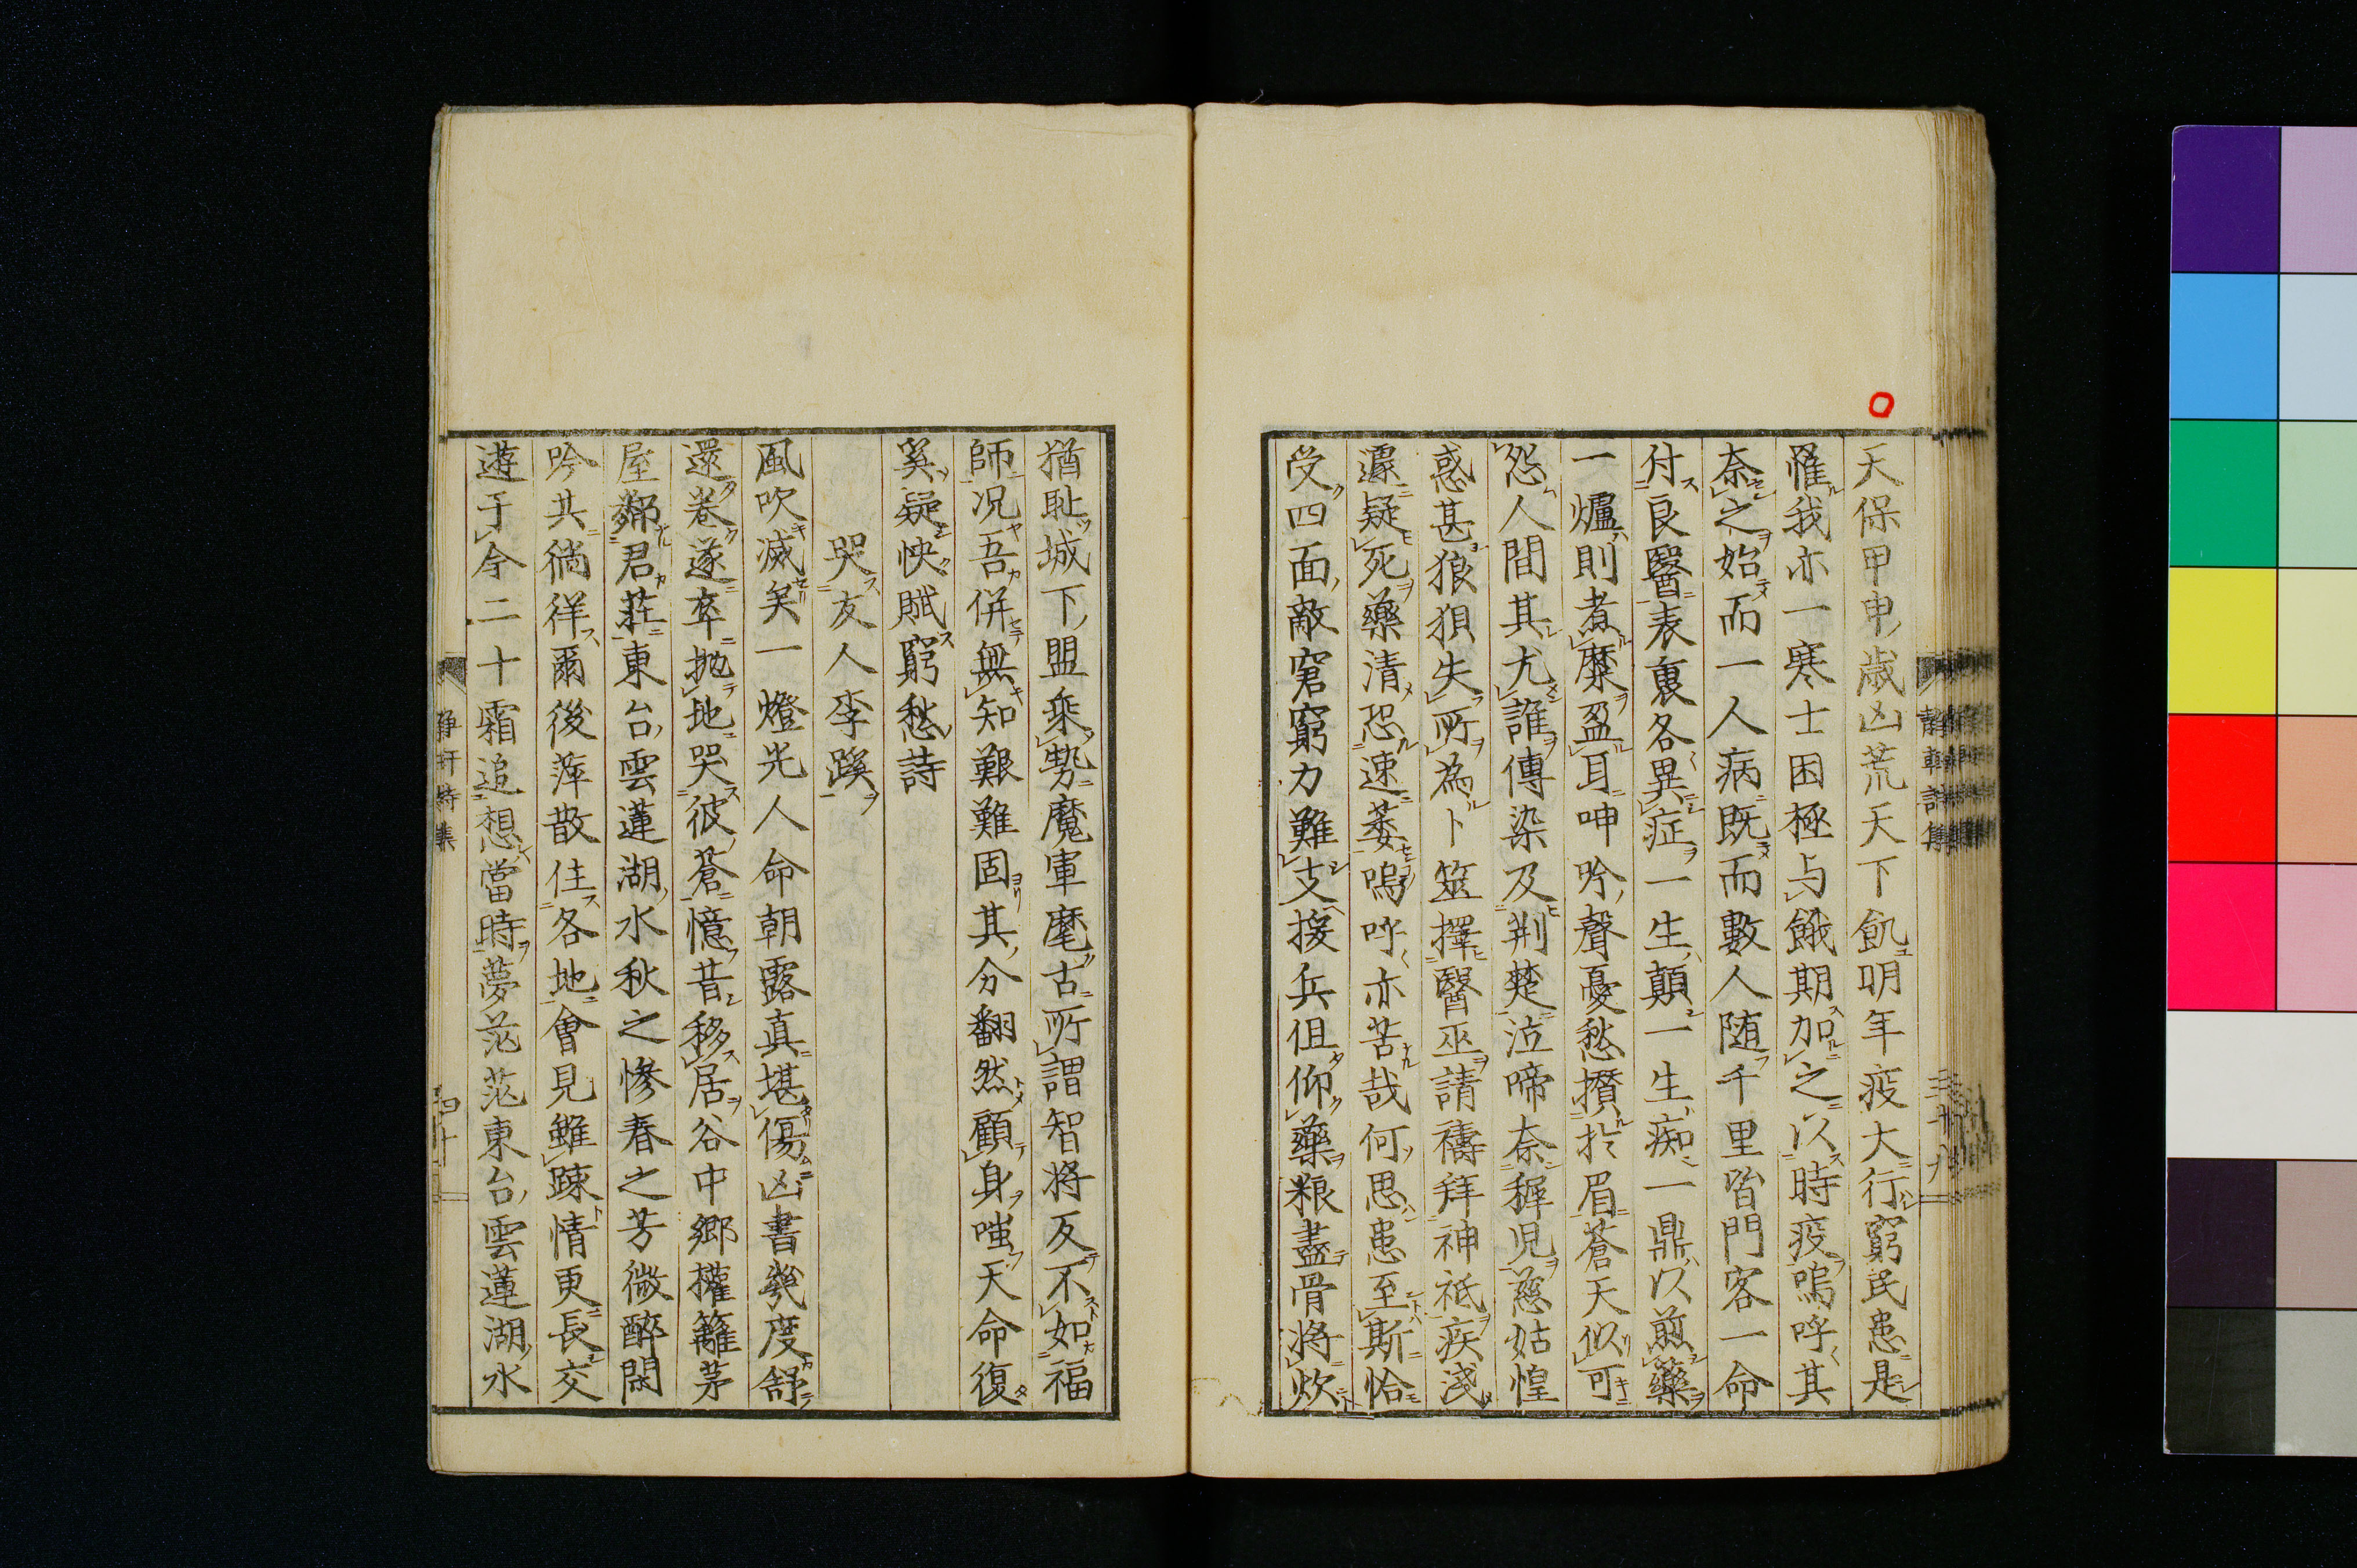 天保甲申歳凶荒天下飢明年疫大行窮民患是
罹我亦一寒士困極与餓期加之以時疫嗚呼其
奈之始而一人病既而數人随千里皆門客一命
付良醫表裏各異症一生顛一生痴一鼎以煎藥
一爐則煮糜盈耳呻吟聲憂愁攢於眉蒼天似可
怨人間其尤誰傳染及荊楚泣啼奈稺児慈姑惶
惑甚狼狽失所為卜筮擇醫巫請禱拜神祇疾淺
還疑死藥清恐速萎嗚呼亦苦哉何思患至斯恰
受四面敵窘窮力難支援兵但仰藥粮盡骨將炊
猶耻城下盟乘勢魔軍麾古所謂智将反不如福
師况吾併無知艱難固其分翻然顧身嗤天命復
奚疑怏賦窮愁詩
哭友人李蹊
風吹滅矣一燈光人命朝露真堪傷凶書幾度舒
還卷遂卒抛地哭彼蒼憶昔移居谷中郷權籬茅
屋鄰君荘東台雲蓮湖水秋之惨春之芳微醉閑
吟共徜徉爾後萍散住各地會見雖踈情更長交
遊于今二十霜追想當時夢茫茫東台雲蓮湖水